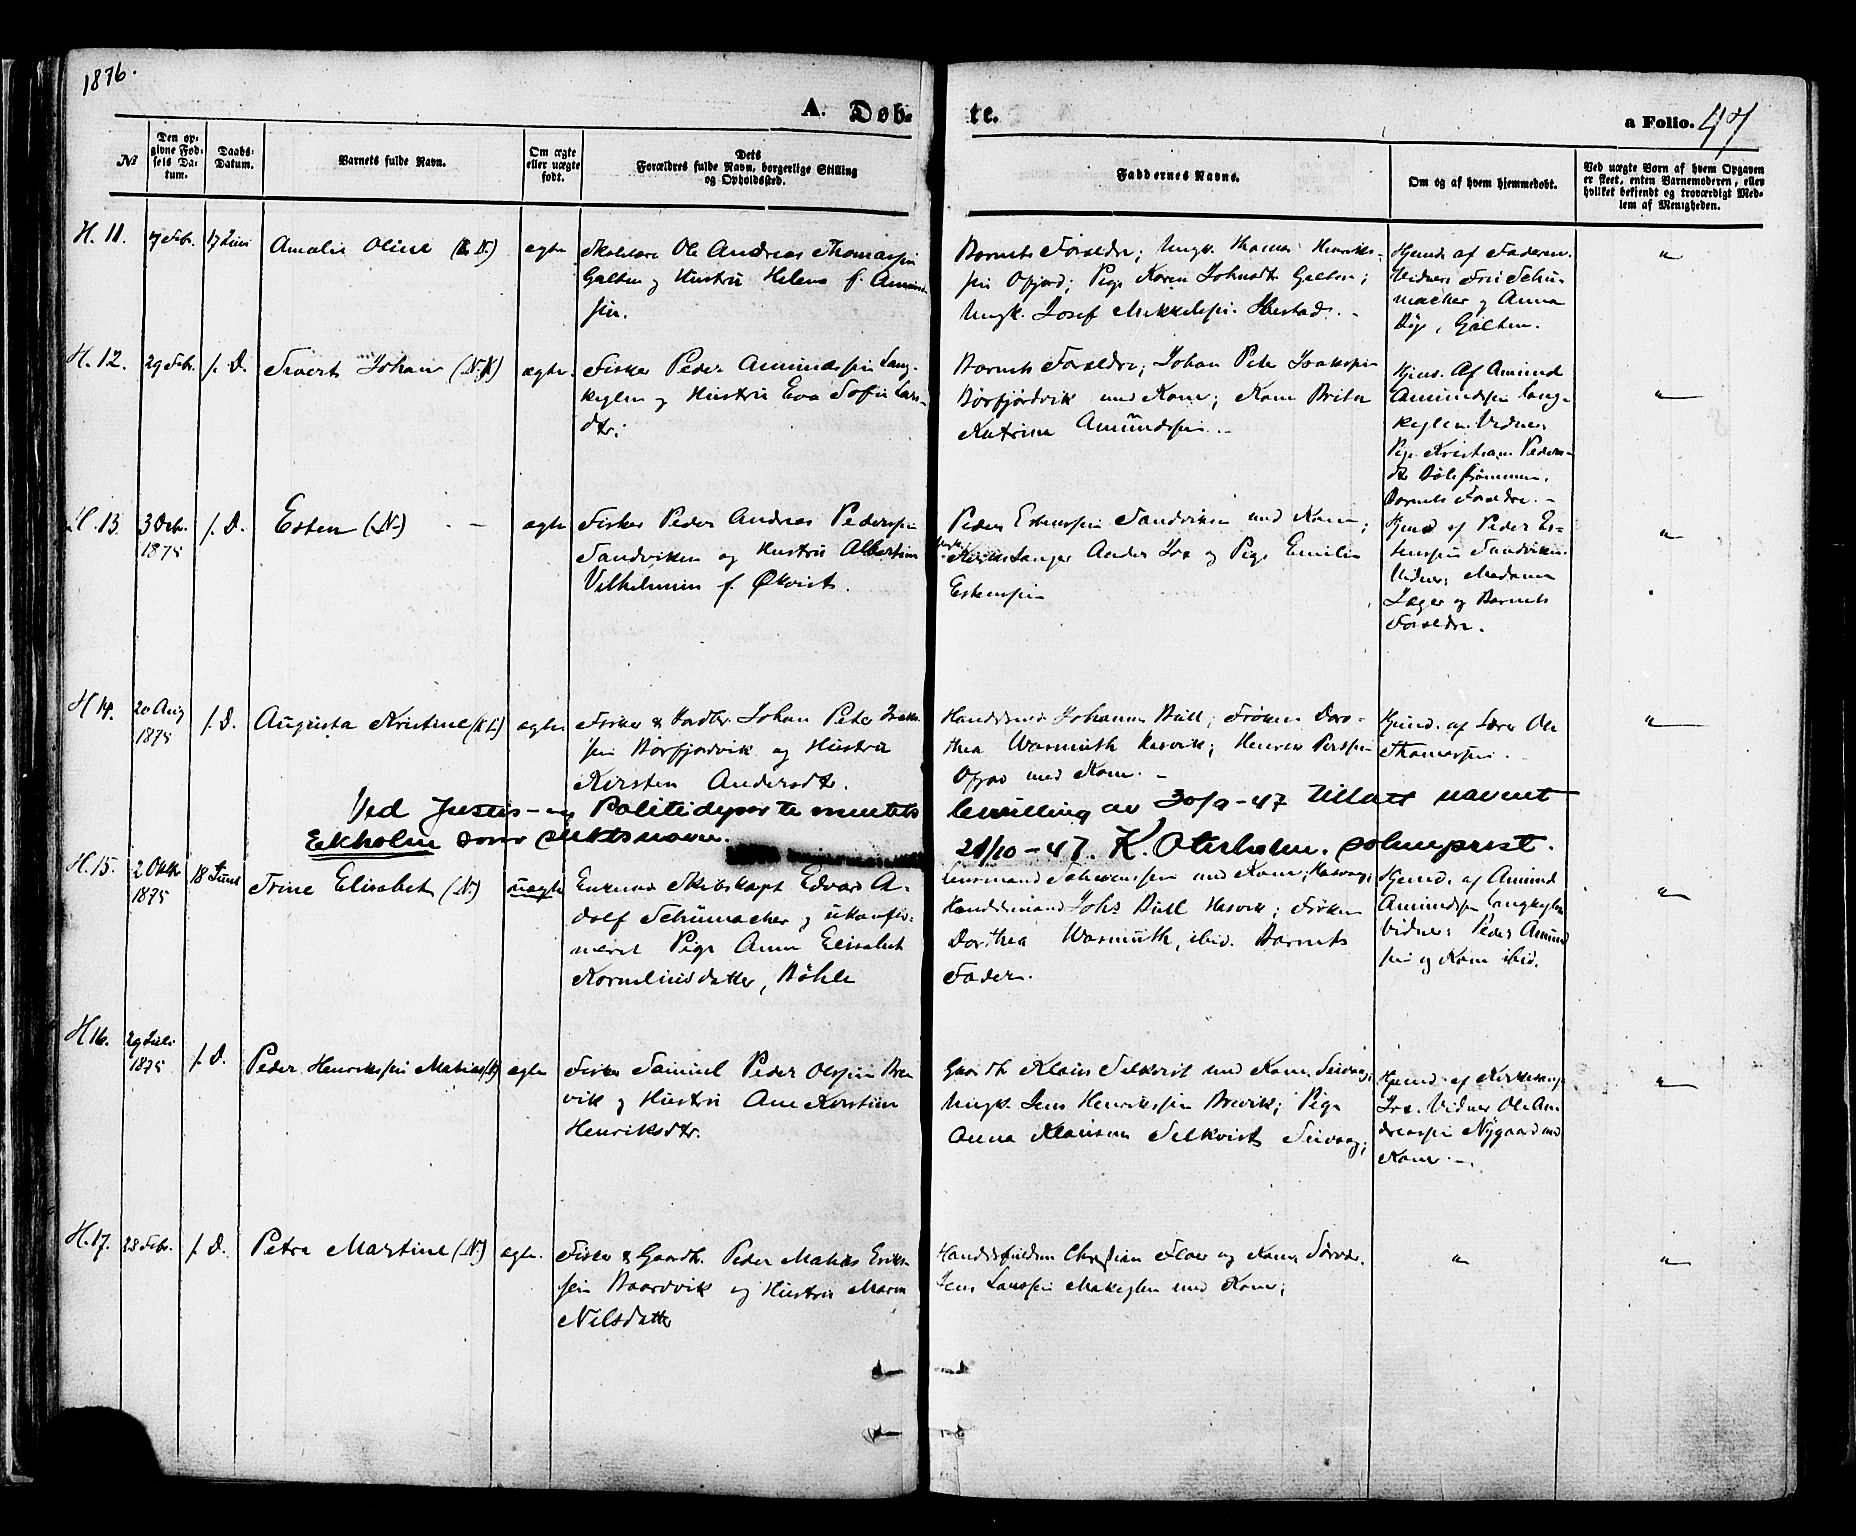 1876.
A. Døb-
te.
a Folio. 47
№
Den op-
givne Fød-
sels Da-
tum.
Daabs-
Datum.
Barnets fulde Navn.
Om ægte
eller uægte
født.
Dets
Forældres fulde Navn, borgerlige Stilling
og Opholdssted.
Faddernes Navne.
Om og af hvem hjemmedøbt.
Ved uægte Børn af hvem Opgaven
er skeet, enten Barnemoderen, eller
hvilket bekjendt og troværdigt Med-
lem af Menigheden.
H. 11.
17 Febr.
17 Juni
Amalie Oline
ægte
Ole Andreas Thomassen
Galten og Hustru Helena f.
sen.
Barnets Forældre; Ungk. Thomas Henrik-
sen Ofjord; Pige Karen Johnsdtr Galten;
Ungk. Josef Mikkelsen
Hjemd. af Faderen.
Vidner Schu-
macher og Anna
Galten.
H. 12.
29 Febr.
s. D.
Sivert Johan
ægte.
Fisker Peder Amundsen Lang-
keglen og Hustru Eva Sofie Lars-
dtr.
Barnets Forældre; Johan Peter Isaksen
Børfjordvik med Kone; Kone Brita
Katrina Amundsen
Hjemd. Af Amund
Amundsen Lang-
keglen. Vidner
Pige Peders-
dtr Bölestrømmen.
Barnets Forældre.
H. 13.
3 Dcbr.
1875
s. D.
Esten (N)
ægte
Fisker Peder Andreas Pedersen
Sandviken og Hustru Albertine
Vilhelmine f. Økvist.
Peder Estensen Sandviken med Kone;
Kirkesanger Anders Ise og Pige Emilie
Estensen
Hjemd. af Peder Es-
tensen Sandviken.
Vidner: Madame
Jæger og Barnets
Forældre.
H. 14.
20 Aug
1875
s. D.
Augusta Kristine
ægte
Fisker & Jordbr. Johan Peter Isak-
sen Børfjordvik og Hustru
Kirsten Andersdtr.
Handelsmand Johannes Bull; Frøken Doro-
thea Warmuth Hasvik; Henrik Perssen
Ofjord med Kone.
Hjemd. af Lærer Ole
Thomassen.
Ved Justis- og Politidepartementets
bevilling av 30/9-47 tillatt navnet
Ekholm som slektsnavn.
21/10-47. K. Oterholm. sokneprest.
H. 15.
2 Oktbr
1875
18 Juni
Trine Elisabet (N)
uægte
Enkemand Skibskapt Edvard A-
dolf Schumacher og ukonfir-
meret Pige Anna Elisabet
Korneliusdatter, Böhle
med Kone, Hasvaag;
Handelsmand Johs Bull Hasvik; Frøken
Dorthea Warmuth, ibid. Barnets
Fader.
Hjemd. af Amund
Amundsen Langkeglen
Vidner: Peder Amund
sen og Kone ibid.
H. 16.
29 Juli
1875
s. D.
Peder Henriksen Matias
ægte
Fisker Samuel Peder Olssen Bre
vik og Hustru Ane Kirstine
Henriksdtr.
Gaardb. Klaus Selkvist med Kone
Ungk. Jens Henriksen Brevik; Pige
Anna Klausen Selkvist
Hjemd. af Kirkesanger
Ise. Vidner Ole An
dreassen Nygaard med
Kone.
H. 17.
28 Febr.
s. D.
Petra Martine (N)
ægte.
Fisker & Gaardb. Peder Matias Erik
sen Baardvik og Hustru Maren
Nilsdatter
Christian Floer og Kone Sørvær.
Jens Larssen med Kone;